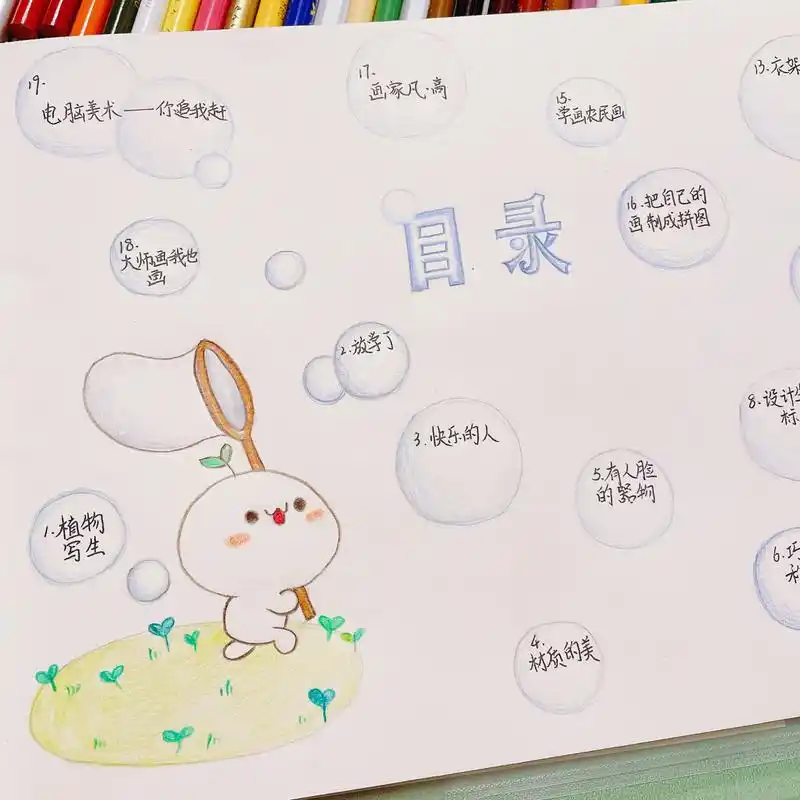 19.
电脑美术——你追我赶
17.
画家凡·高
15.
学画农民画
13.衣架
目录
16.把自己的
画制成拼图
18.
大师画我也
画
2.放学了
3.快乐的人
8.设计
标
5.有人脸
的器物
1.植物
写生
6.巧
4.
材质的美